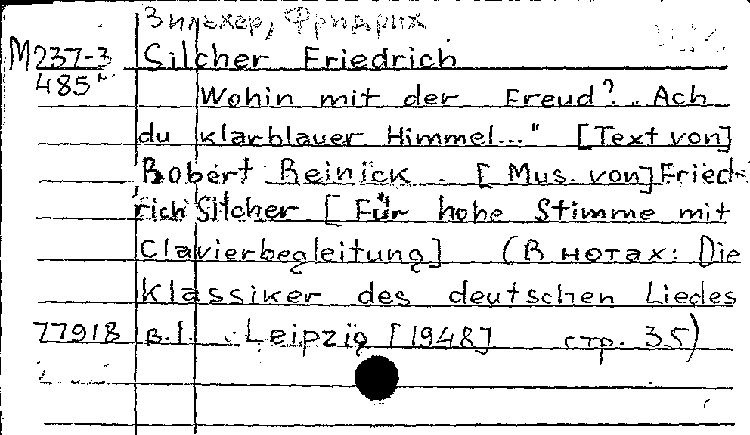 Зильхер, Фридрих
M237-3 Silcher Friedrich
485
Wohin mit der Freud? „Ach
du klarblauer Himmel..." [Text von]
Robert Reinick. [Mus. von] Fried-
rich Silcher [Für hohe Stimme mit
Clavierbegleitung] (В нотах: Die
Klassiker des deutschen Liedes
77918 B.I. Leipzig [1948] стр. 35)